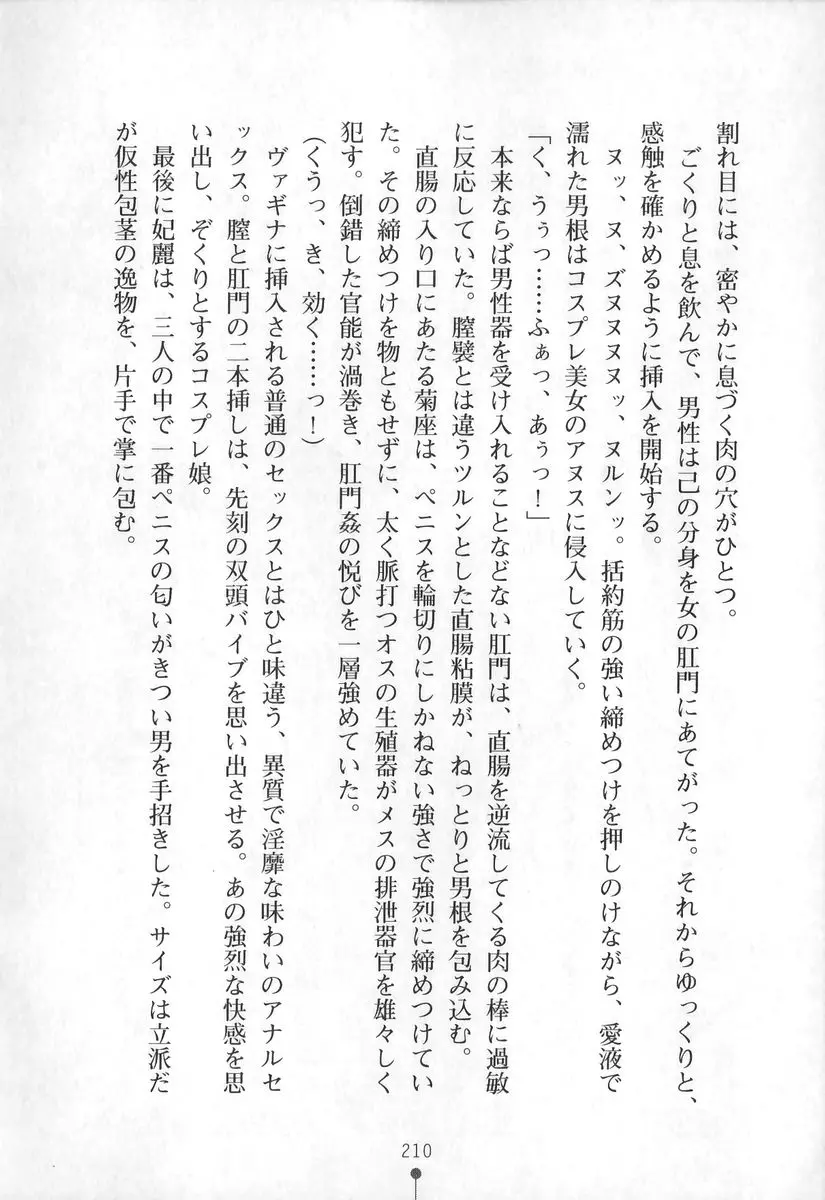 割れ目には、密やかに息づく肉の穴がひとつ。
ごくりと息を飲んで、男性は己の分身を女の肛門にあてがった。それからゆっくりと、
感触を確かめるように挿入を開始する。
ヌッ、ヌ、ズヌヌヌヌッ、ヌルンッ。括約筋の強い締めつけを押しのけながら、愛液で
濡れた男根はコスプレ美女のアヌスに侵入していく。
「く、うぅっ……ふぁっ、あぅっ！」
本来ならば男性器を受け入れることなどない肛門は、直腸を逆流してくる肉の棒に過敏
に反応していた。膣襞とは違うツルンとした直腸粘膜が、ねっとりと男根を包み込む。
直腸の入り口にあたる菊座は、ペニスを輪切りにしかねない強さで強烈に締めつけてい
た。その締めつけを物ともせずに、太く脈打つオスの生殖器がメスの排泄器官を雄々しく
犯す。倒錯した官能が渦巻き、肛門姦の悦びを一層強めていた。
（くうっ、き、効く……っ！）
ヴァギナに挿入される普通のセックスとはひと味違う、異質で淫靡な味わいのアナルセ
ックス。膣と肛門の二本挿しは、先刻の双頭バイブを思い出させる。あの強烈な快感を思
い出し、ぞくりとするコスプレ娘。
最後に妃麗は、三人の中で一番ペニスの匂いがきつい男を手招きした。サイズは立派だ
が仮性包茎の逸物を、片手で掌に包む。
210